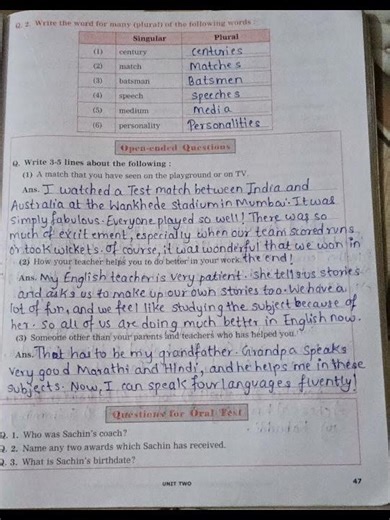 Q. 2. Write the word for many (plural) of the following words :
Singular Plural
(1) century centuries
(2) match Matches
(3) batsman Batsmen
(4) speech speeches
(5) medium media
(6) personality Personalities
Open-ended Questions
Q. Write 3-5 lines about the following :
(1) A match that you have seen on the playground or on TV.
Ans. I watched a Test match between India and
Australia at the Wankhede stadium in Mumbai. It was
simply fabulous. Everyone played so well! There was so
much of excitement, especially when our team scored runs
or took wickets. Of course, it was wonderful that we won in
the end!
(2) How your teacher helps you to do better in your work.
Ans. My English teacher is very patient. She tells us stories
and asks us to make up our own stories too. We have a
lot of fun, and we feel like studying the subject because of
her. So all of us are doing much better in English now.
(3) Someone other than your parents and teachers who has helped you.
Ans. That has to be my grandfather. Grandpa speaks
very good Marathi and Hindi, and he helps me in these
subjects. Now, I can speak four languages fluently!
Questions for Oral Test
Q. 1. Who was Sachin's coach?
Q. 2. Name any two awards which Sachin has received.
Q. 3. What is Sachin's birthdate?
UNIT TWO 47